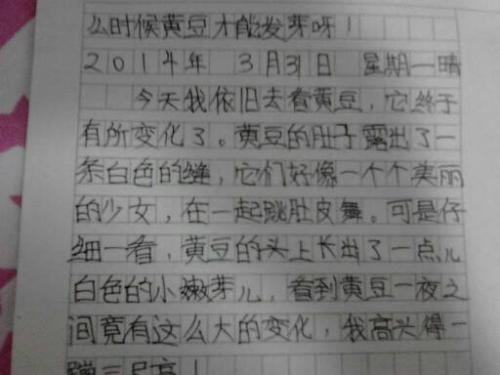 么时候黄豆才能发芽呀！
2014年 3月31日 星期一晴
今天我依旧去看黄豆，它终于
有所变化了。黄豆的肚子露出了一
条白色的缝，它们好像一个个美丽
的少女，在一起跳肚皮舞。可是仔
细一看，黄豆的头上长出了一点儿
白色的小嫩芽儿，看到黄豆一夜之
间竟有这么大的变化，我高兴得一
蹦三尺高！